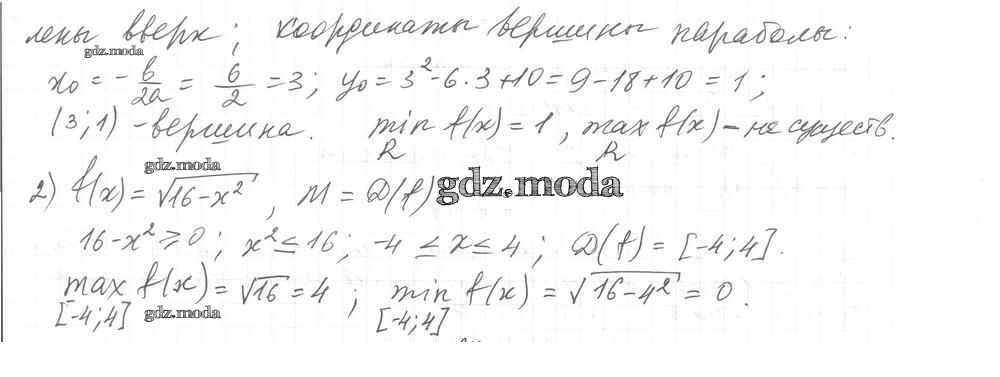 лены вверх; координаты вершины параболы:
gdz.moda
x₀ = -b/2a = 6/2 = 3; y₀ = 3² - 6·3 + 10 = 9 - 18 + 10 = 1;
(3; 1) - вершина. min f(x) = 1, max f(x) - не существ.
R R
gdz.moda
2) f(x) = √16-x², M = D(f) gdz.moda
16-x² ≥ 0; x² ≤ 16; -4 ≤ x ≤ 4; D(f) = [-4; 4].
max f(x) = √16 = 4; min f(x) = √16-4² = 0.
[-4; 4] gdz.moda [-4; 4]